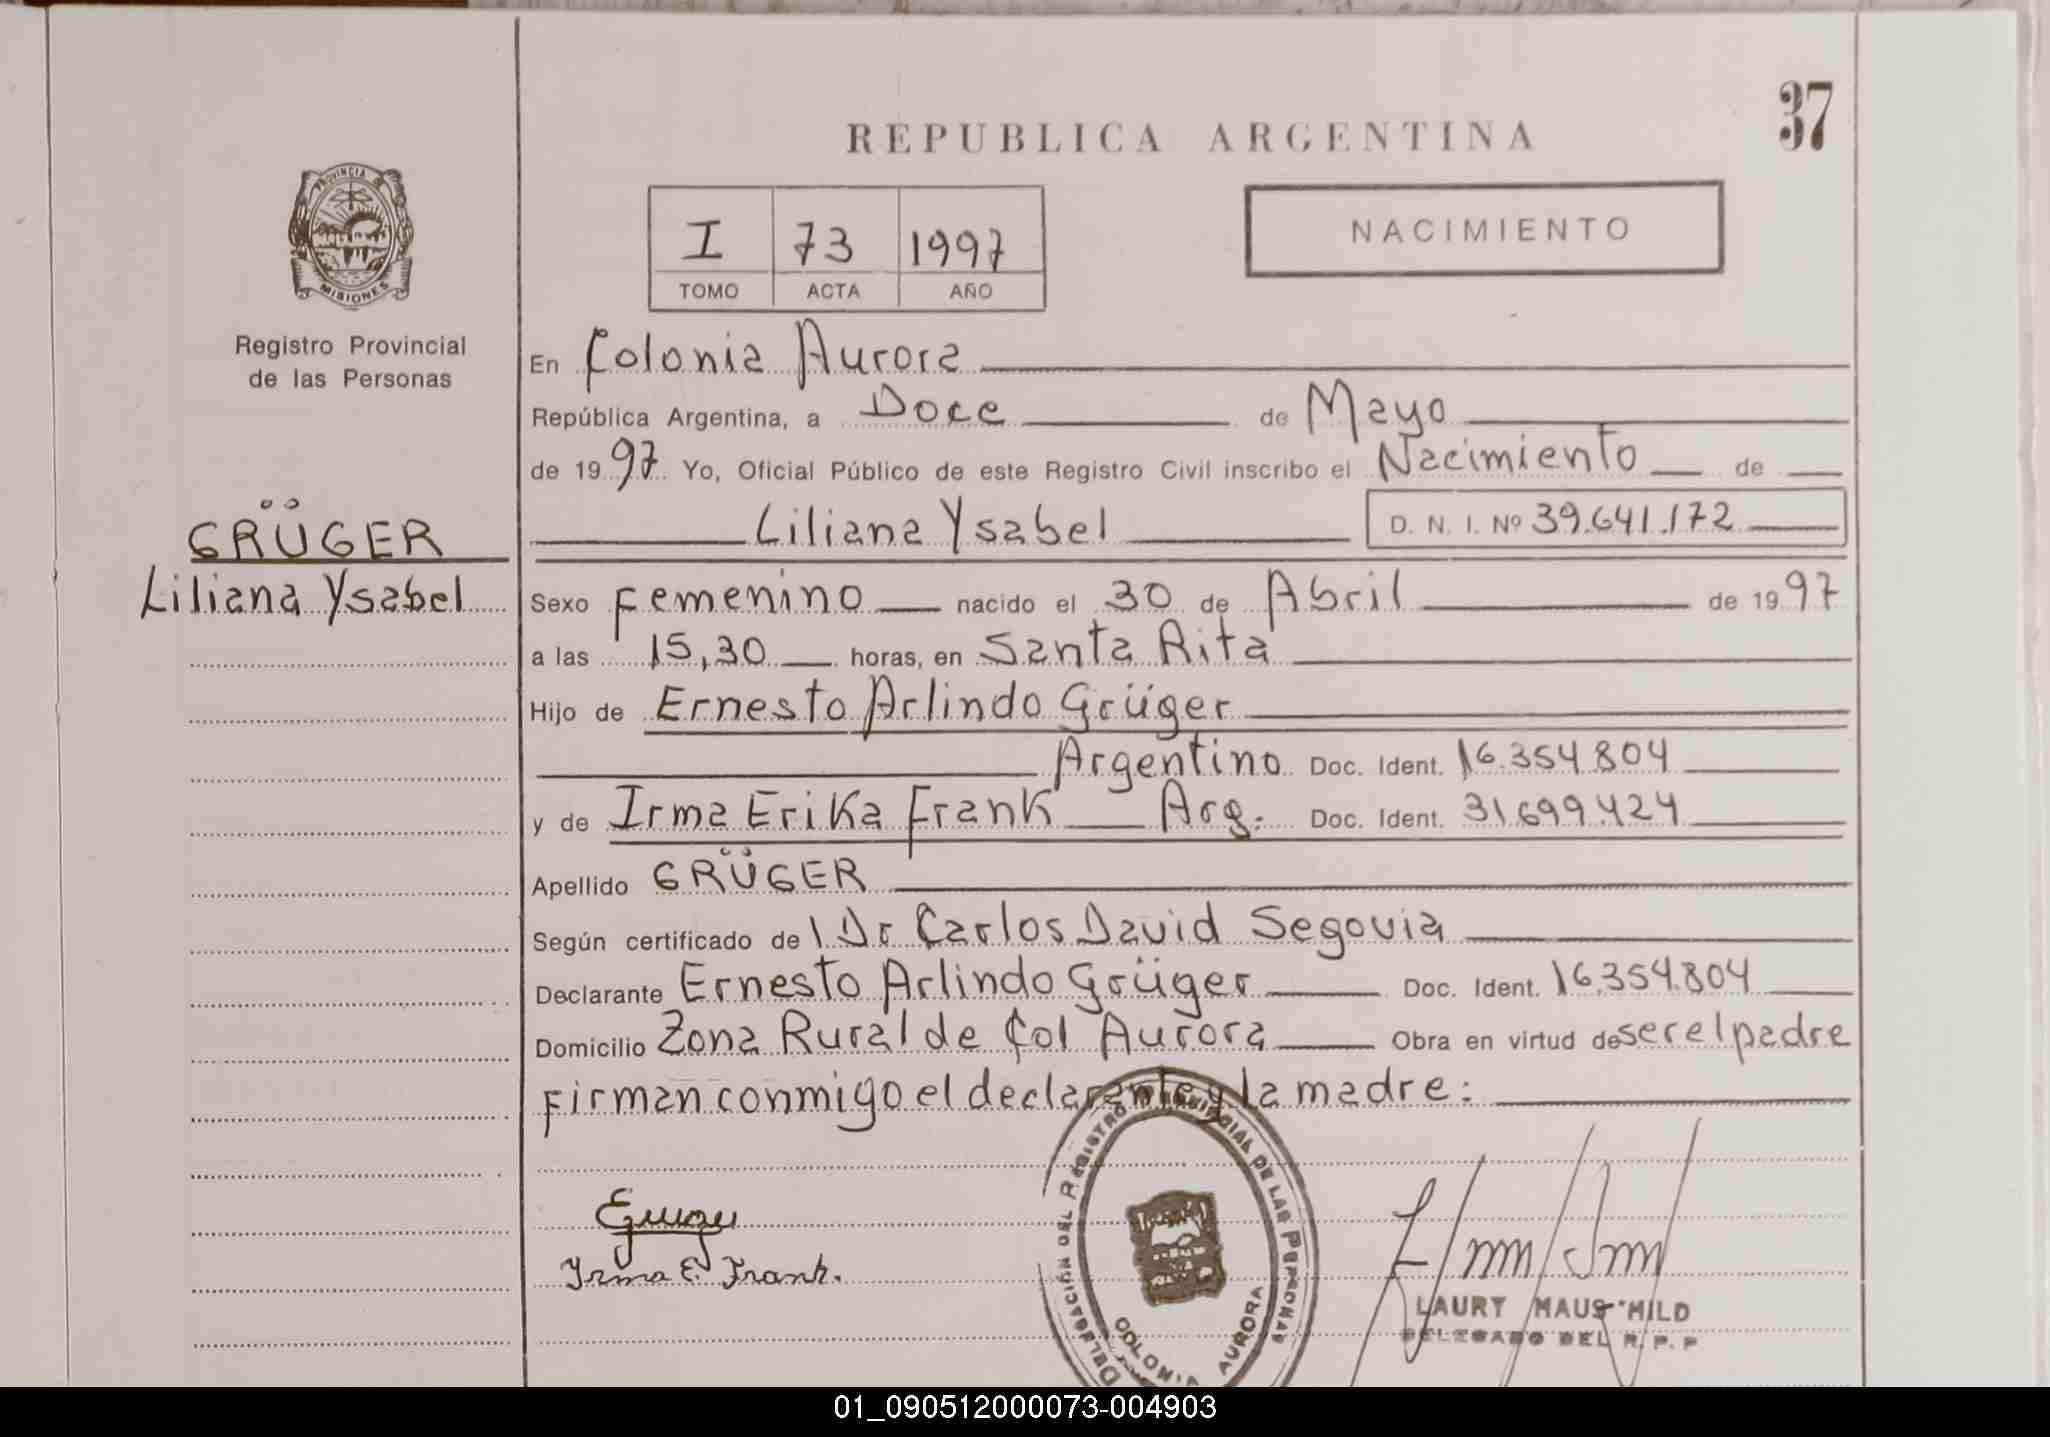 37
REPUBLICA ARGENTINA
PROVINCIA DE
MISIONES
I 73 1997
TOMO ACTA AÑO
NACIMIENTO
Registro Provincial
de las Personas
GRÜGER
Liliana Ysabel
En Colonia Aurora
República Argentina, a Doce de Mayo
de 1997 Yo, Oficial Público de este Registro Civil inscribo el Nacimiento de
Liliana Ysabel D. N. I. Nº 39.641.172
Sexo Femenino nacido el 30 de Abril de 1997
a las 15,30 horas, en Santa Rita
Hijo de Ernesto Arlindo Grüger
Argentino Doc. Ident. 16.354.804
y de Irma Erika Frank Arg. Doc. Ident. 31.699.424
Apellido GRÜGER
Según certificado de l Dr Carlos David Segovia
Declarante Ernesto Arlindo Grüger Doc. Ident. 16.354.804
Domicilio Zona Rural de Col Aurora Obra en virtud de ser el padre
Firman conmigo el declarante y la madre:
Irma E. Frank.
DELEGACIÓN DEL REGISTRO PROVINCIAL DE LAS PERSONAS
COLONIA AURORA
LAURY HAUS HILD
DELEGADO DEL R. P. P
01_090512000073-004903